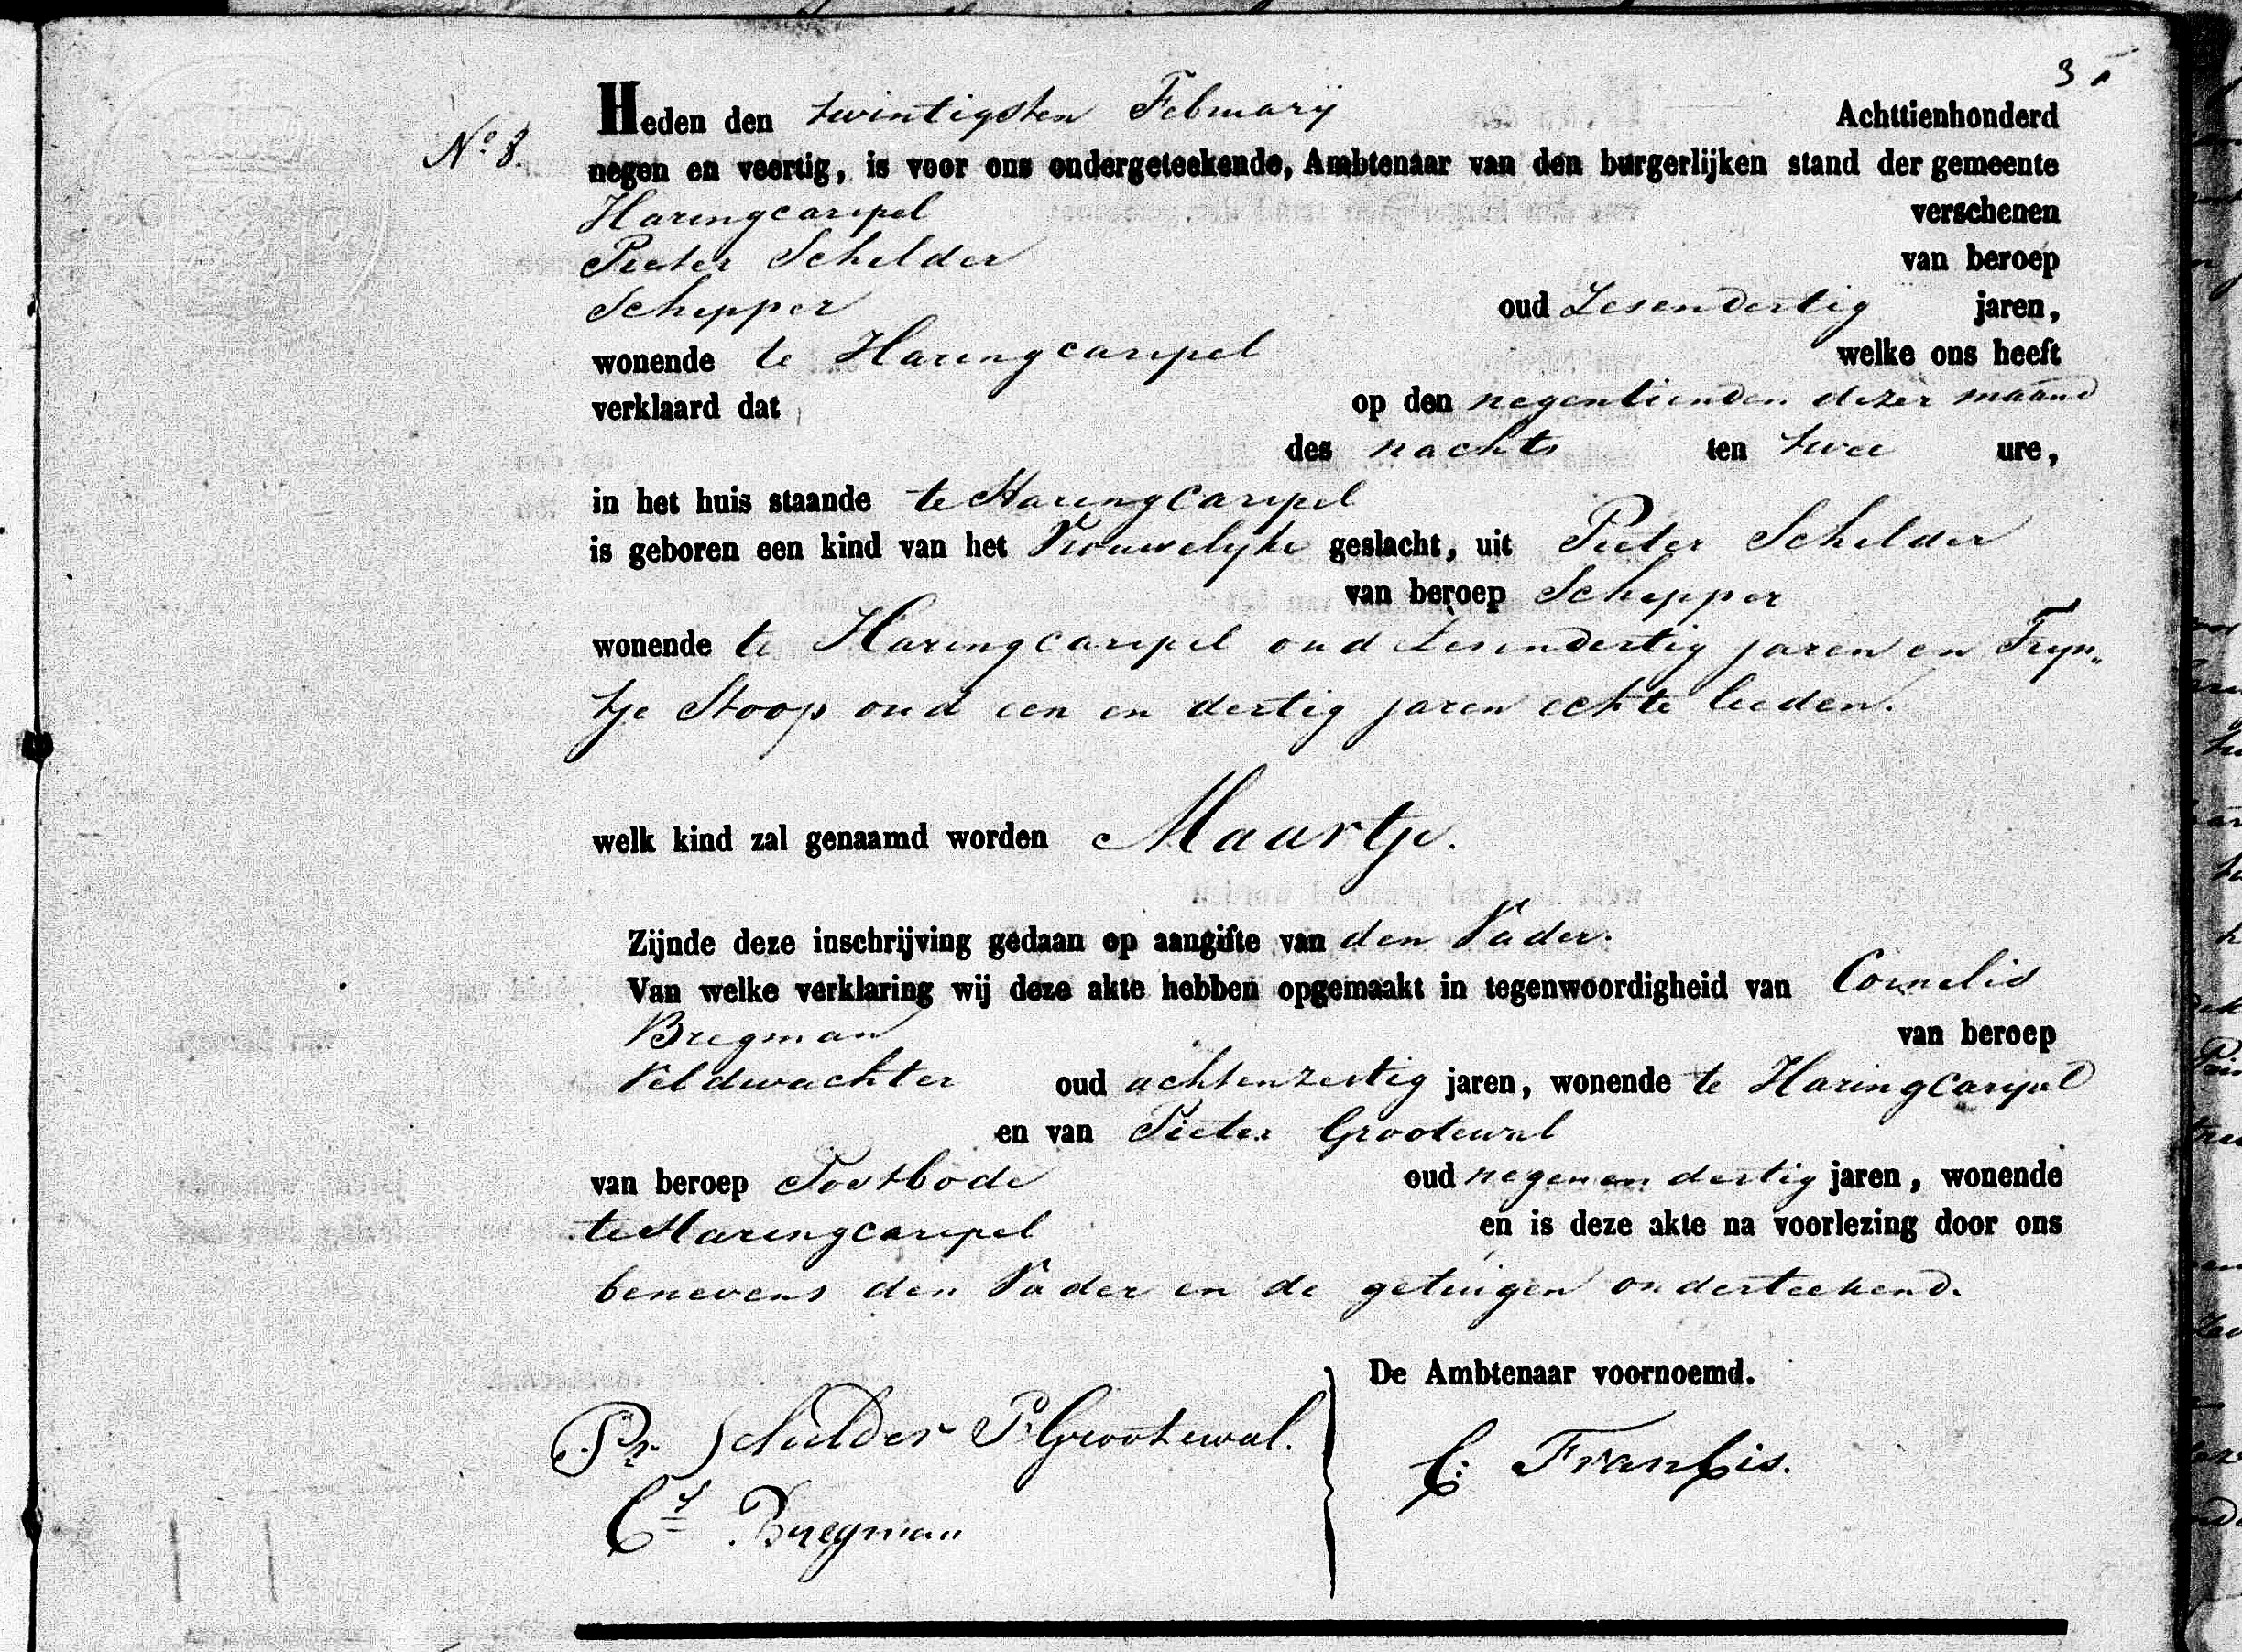 3
No 8.
Heden den twintigsten February Achttienhonderd
negen en veertig, is voor ons ondergeteekende, Ambtenaar van den burgerlijken stand der gemeente
Haringcarspel verschenen
Pieter Schilder van beroep
Schipper oud Zesendertig jaren,
wonende te Haringcarspel welke ons heeft
verklaard dat op den negentienden dezer maand
des nachts ten twee ure,
in het huis staande te Haringcarspel
is geboren een kind van het Vrouwelyke geslacht, uit Pieter Schilder
van beroep Schipper
wonende te Haringcarspel oud Zesendertig jaren en Tryn„
tje Stoop oud een en dertig jaren echte lieden.
welk kind zal genaamd worden Maartje.
Zijnde deze inschrijving gedaan op aangifte van den Vader.
Van welke verklaring wij deze akte hebben opgemaakt in tegenwoordigheid van Cornelis
Bregman van beroep
Veldwachter oud achtenzestig jaren, wonende te Haringcarspel
en van Pieter Grootewal
van beroep Postbode oud negenendertig jaren, wonende
te Haringcarspel en is deze akte na voorlezing door ons
benevens den Vader en de getuigen onderteekend.
De Ambtenaar voornoemd.
Pr Schilder P Grootewal.
C: Francis.
Cs Bregman